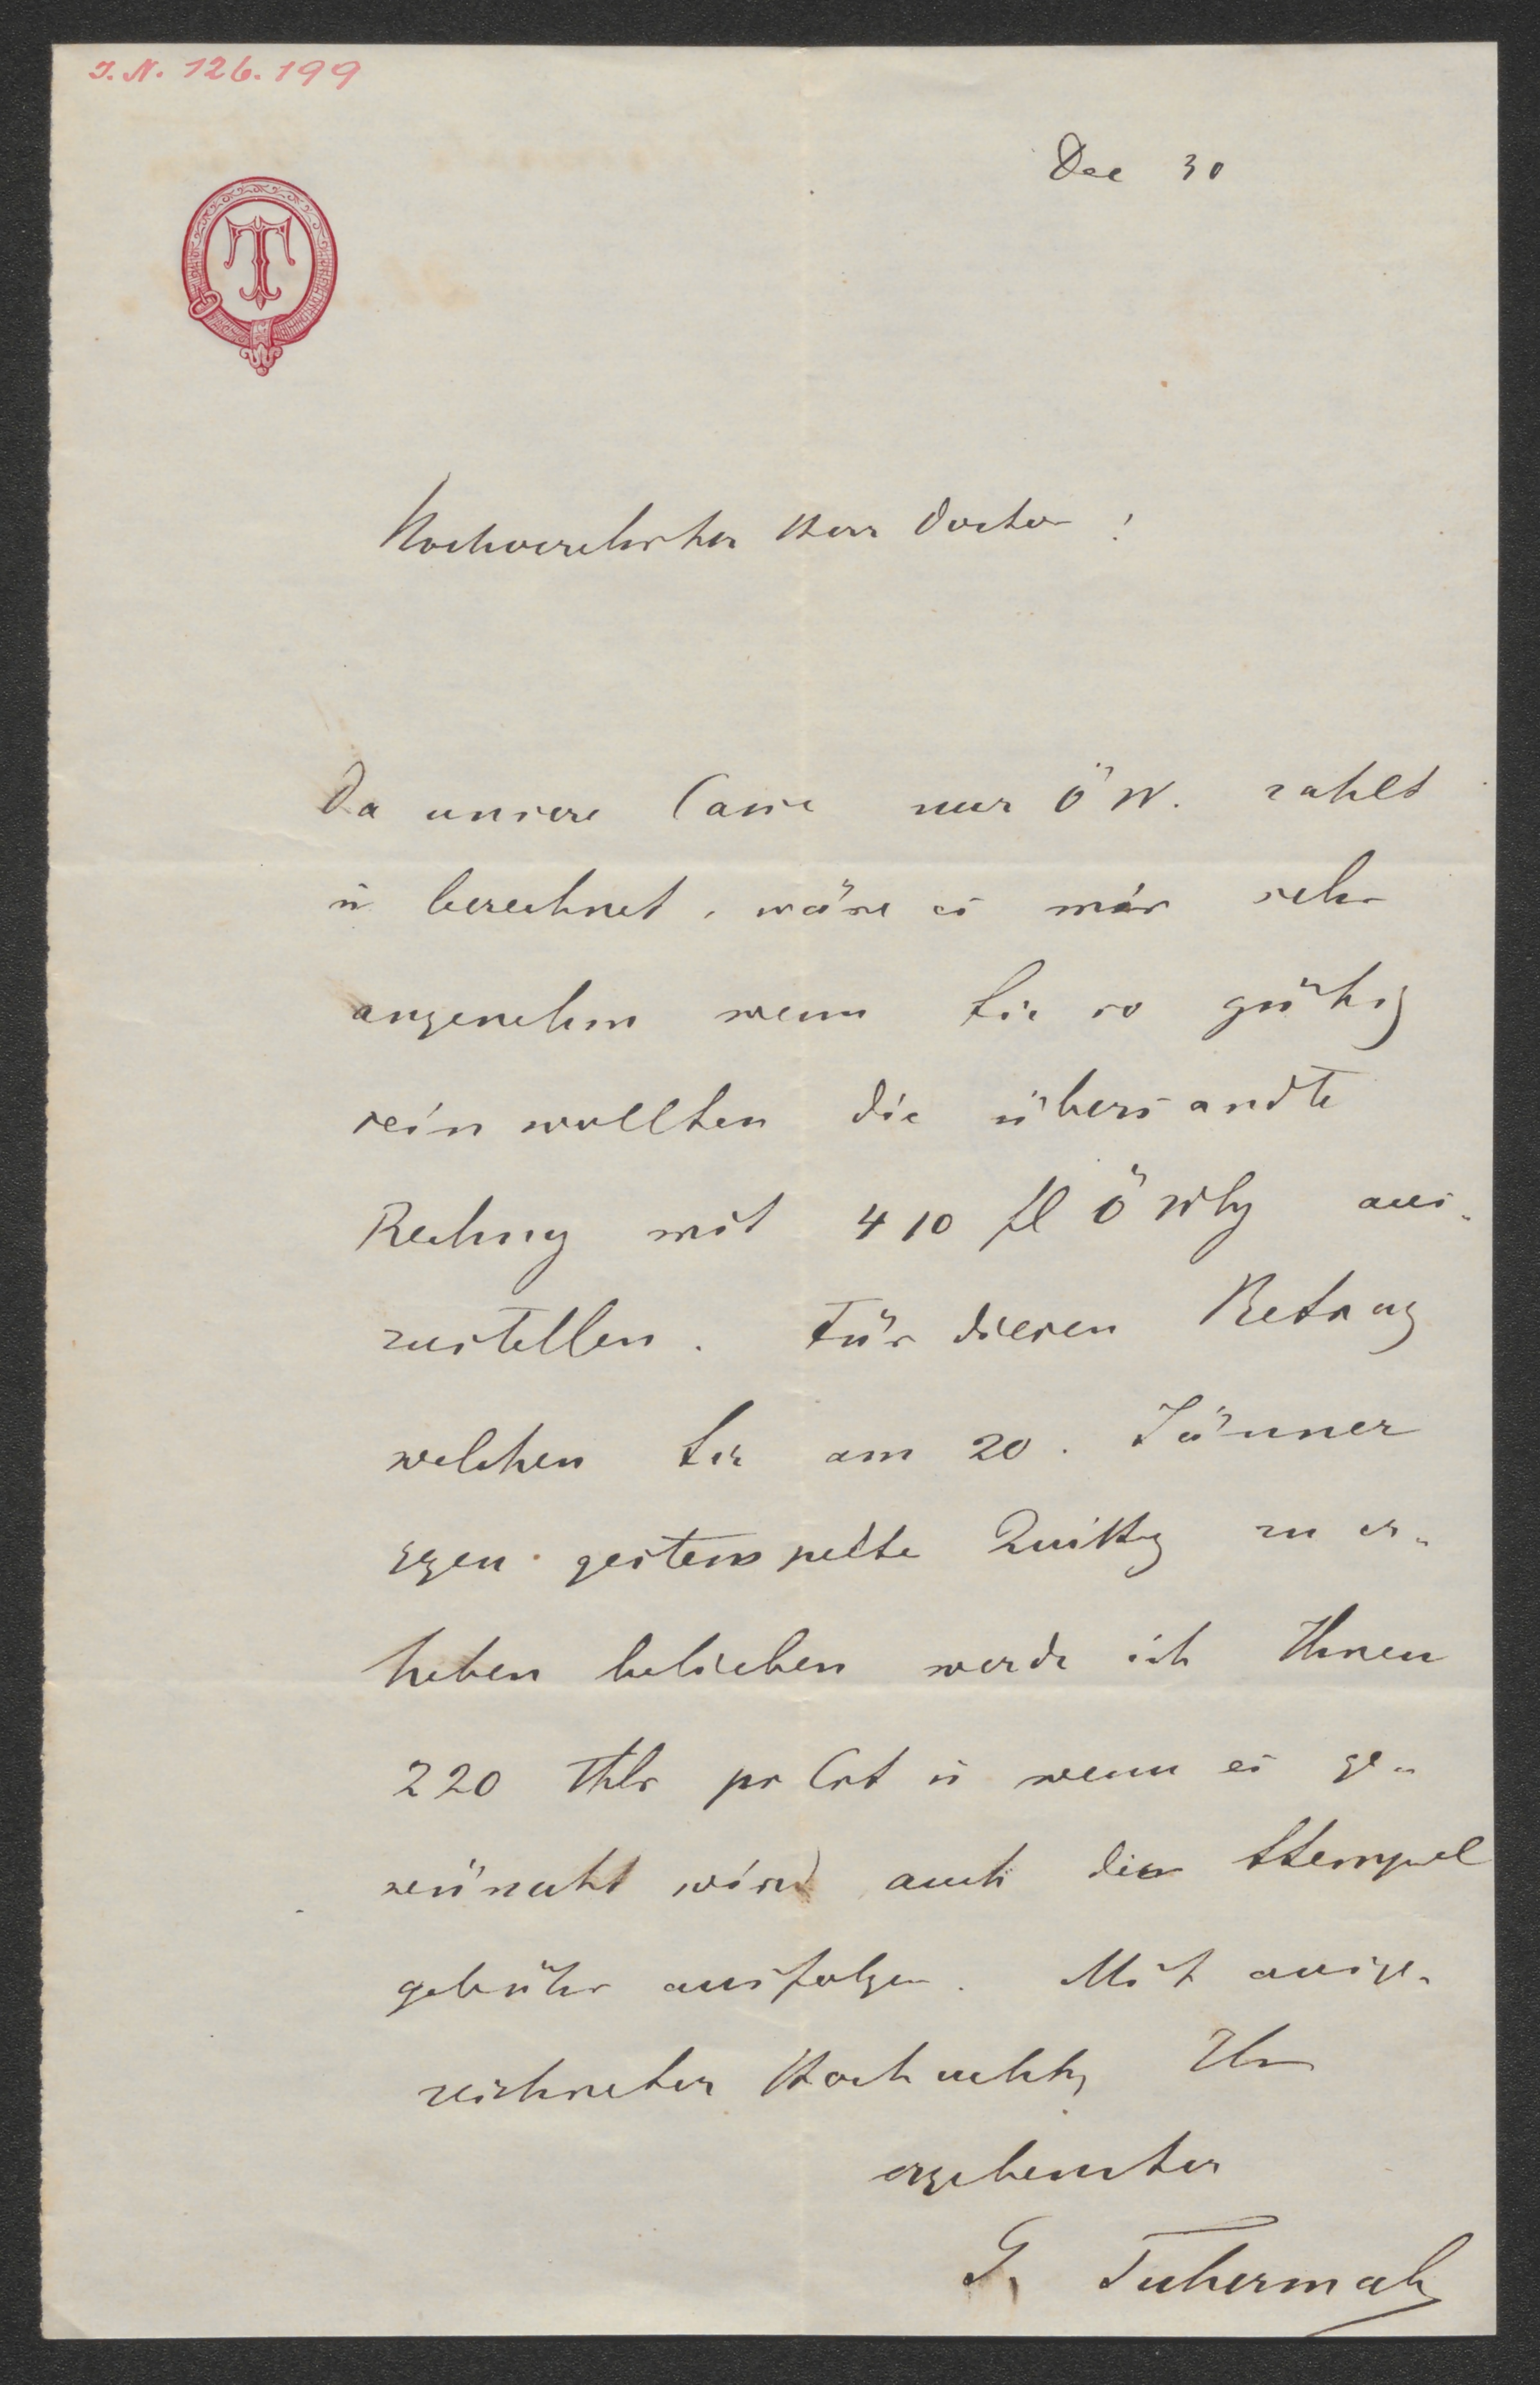 I. N. 126.199
Dec 30
T
Hochverehrter Herr Doctor!
Da unsere Casse nur ö W. zahlt
u berechnet, wäre es mir sehr
angenehm wenn Sie so gütig
sein wollten die übersandte
Rechng mit 410 fl ö Whg aus-
zustellen. Für diesen Betrag
welchen Sie am 20. Jänner
gegen gestempelte Quittg zu er-
heben belieben werde ich Ihnen
220 Thlr pr Crt u wenn es ge-
wünscht wird auch die Stempel
gebühr ausfolgen. Mit ausge-
zeichneter Hochachtg Ihr
ergebenster
G. Tschermak